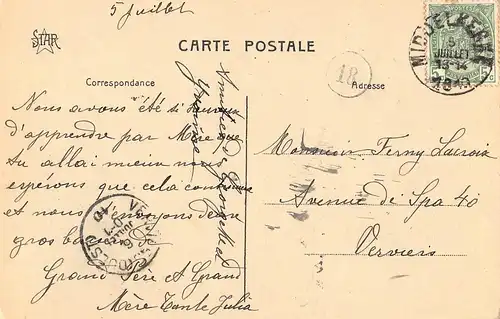 5 juillet
STAR
CARTE POSTALE
MIDDELKERKE
5
JUILLET
13-14
5 c
18
Correspondance
Adresse
Nous avons été si heureux
d'apprendre par Mère que
tu allai mieux nous
espérons que cela continue
et nous t'envoyons de
gros
Grand Père et Grand
Mère Tante Julia
Amitiés de
Monsieur Ferny Lacroix
Avenue de Spa 40
Verviers